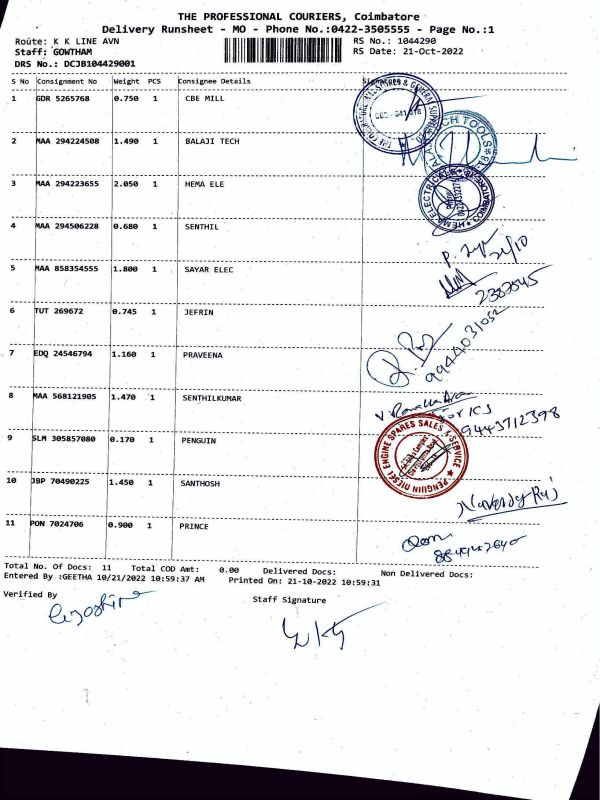 THE PROFESSIONAL COURIERS, Coimbatore
Delivery Runsheet - MO - Phone No.:0422-3505555 - Page No.:1
Route: K K LINE AVN RS No.: 1044290
Staff: GOWTHAM RS Date: 21-Oct-2022
DRS No.: DCJB104429001
S No Consignment No Weight PCS Consignee Details Signature
1 GDR 5265768 0.750 1 CBE MILL
2 MAA 294224508 1.490 1 BALAJI TECH
3 MAA 294223655 2.050 1 HEMA ELE
4 MAA 294506228 0.680 1 SENTHIL
21/10
5 MAA 858354555 1.800 1 SAYAR ELEC
6 TUT 269672 0.745 1 JEFRIN
9944031052
7 EDQ 24546794 1.160 1 PRAVEENA
8 MAA 568121905 1.470 1 SENTHILKUMAR
9443712398
9 SLM 305857080 0.170 1 PENGUIN
PENGUIN DIESEL ENGINE SPARES SALES & SERVICE
10 JBP 70490225 1.450 1 SANTHOSH
11 PON 7024706 0.900 1 PRINCE
Total No. Of Docs: 11 Total COD Amt: 0.00 Delivered Docs: Non Delivered Docs:
Entered By :GEETHA 10/21/2022 10:59:37 AM Printed On: 21-10-2022 10:59:31
Verified By
Staff Signature